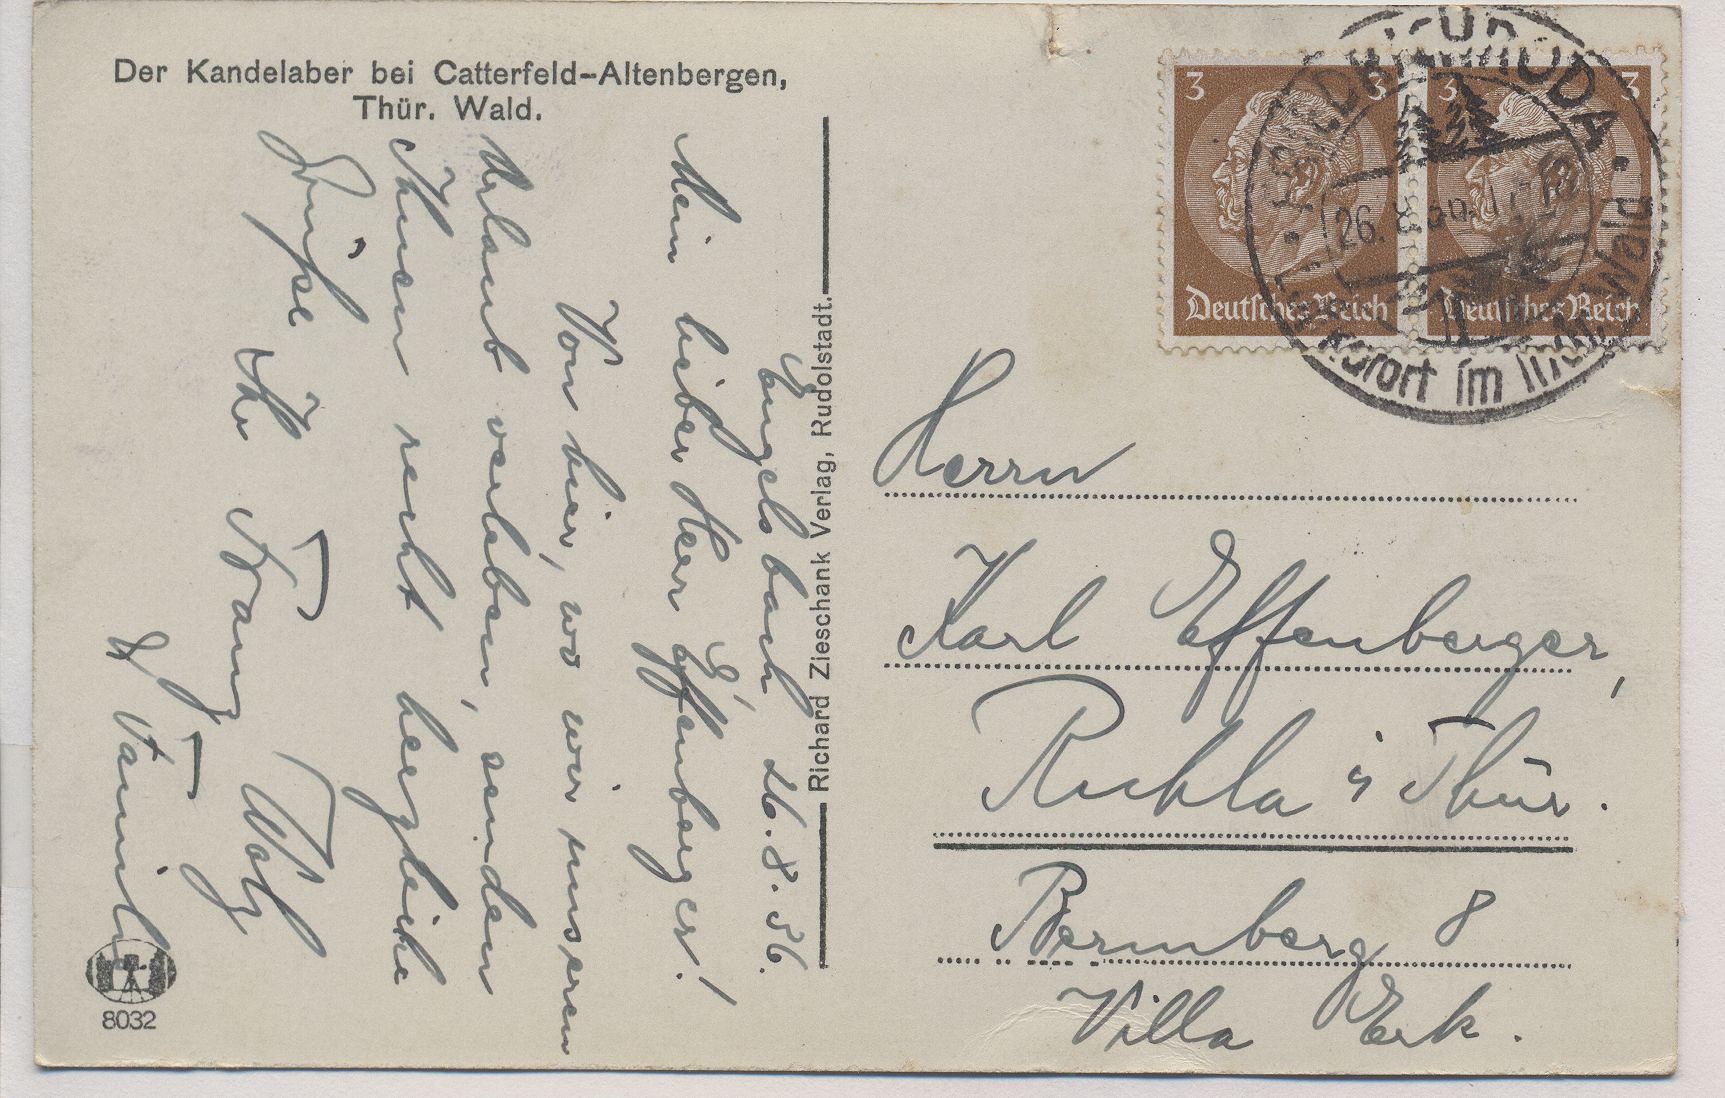 Der Kandelaber bei Catterfeld-Altenbergen,
Thür. Wald.
Engelsbach 26.8.36.
Mein lieber Herr Effenberger!
Von hier, wo wir unseren
Urlaub verleben, senden
Ihnen recht herzliche
Grüße Ihr Franz Wolz
u Familie
8032
Richard Zieschank Verlag, Rudolstadt.
3 3
3
Deutsches Reich
Deutsches Reich
FRIEDRICHRODA.
26. 8.
Kurort im Thür. Wald
Herrn
Karl Effenberger,
Ruhla i Thür.
Bermberg 8
Villa Erk.